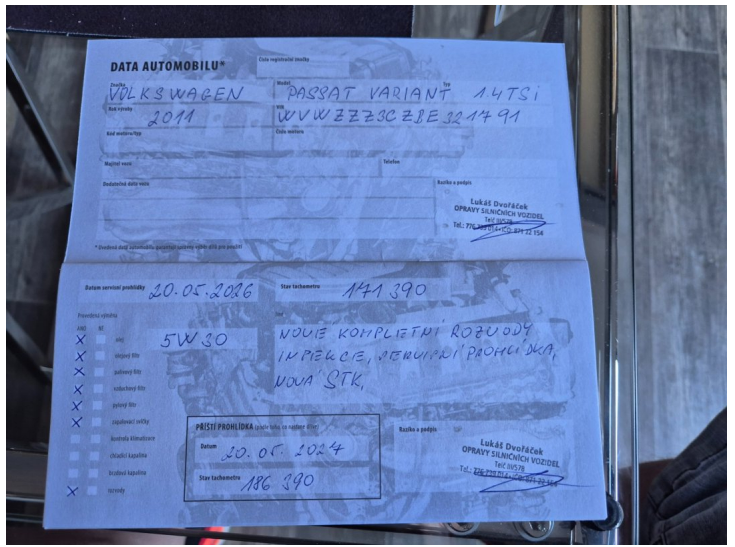 DATA AUTOMOBILU*
Číslo registrační značky
Značka Model Typ
VOLKSWAGEN PASSAT VARIANT 1.4TSi
Rok výroby VIN
2011 WVWZZZ3CZBE321791
Kód motoru/typ Číslo motoru
Majitel vozu Telefon
Dodatečná data vozu Razítko a podpis
Lukáš Dvořáček
OPRAVY SILNIČNÍCH VOZIDEL
Telč II/578
Tel.: IČO: 871 22 154
Datum servisní prohlídky 20.05.2026 Stav tachometru 171 390
ANO NE
X olej 5W30
X olejový filtr
X palivový filtr
X vzduchový filtr
X pylový filtr
X zapalovací svíčky
kontrola klimatizace
chladicí kapalina
brzdová kapalina
X rozvody
NOVÉ KOMPLETNÍ ROZVODY,
INSPEKCE, SERVISNÍ PROHLÍDKA,
NOVÁ STK,
PŘÍŠTÍ PROHLÍDKA
Datum 20.05.2027
Stav tachometru 186 390
Razítko a podpis
Lukáš Dvořáček
OPRAVY SILNIČNÍCH VOZIDEL
Telč II/578
Tel.: